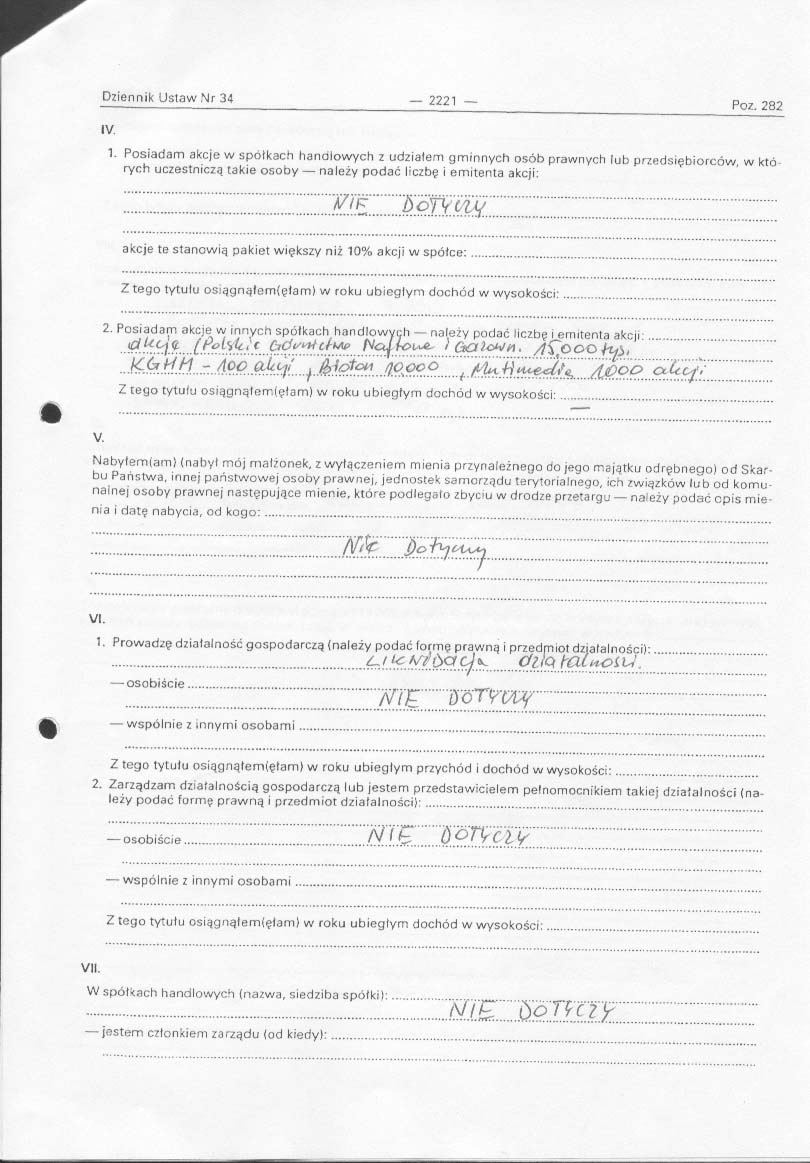 Dziennik Ustaw Nr 34 — 2221 — Poz. 282
IV.
1. Posiadam akcje w spółkach handlowych z udziałem gminnych osób prawnych lub przedsiębiorców, w któ-
rych uczestniczą takie osoby — należy podać liczbę i emitenta akcji:
NIE DOTYCZY
akcje te stanowią pakiet większy niż 10% akcji w spółce:
Z tego tytułu osiągnąłem(ęłam) w roku ubiegłym dochód w wysokości:
2. Posiadam akcje w innych spółkach handlowych — należy podać liczbę i emitenta akcji:
akcje (Polskie Górnictwo Naftowe i Gazown. 15,000 tys,
KGHM - 100 akcji, Bioton 10.000, Mutimedia 1000 akcji
Z tego tytułu osiągnąłem(ęłam) w roku ubiegłym dochód w wysokości: —
V.
Nabyłem(am) (nabył mój małżonek, z wyłączeniem mienia przynależnego do jego majątku odrębnego) od Skar-
bu Państwa, innej państwowej osoby prawnej, jednostek samorządu terytorialnego, ich związków lub od komu-
nalnej osoby prawnej następujące mienie, które podlegało zbyciu w drodze przetargu — należy podać opis mie-
nia i datę nabycia, od kogo:
Nie Dotyczy
VI.
1. Prowadzę działalność gospodarczą (należy podać formę prawną i przedmiot działalności):
LIKWIDacja działalności.
— osobiście
NIE DOTYCZY
— wspólnie z innymi osobami
Z tego tytułu osiągnąłem(ęłam) w roku ubiegłym przychód i dochód w wysokości:
2. Zarządzam działalnością gospodarczą lub jestem przedstawicielem pełnomocnikiem takiej działalności (na-
leży podać formę prawną i przedmiot działalności):
— osobiście NIE DOTYCZY
— wspólnie z innymi osobami
Z tego tytułu osiągnąłem(ęłam) w roku ubiegłym dochód w wysokości:
VII.
W spółkach handlowych (nazwa, siedziba spółki):
NIE DOTYCZY
— jestem członkiem zarządu (od kiedy):